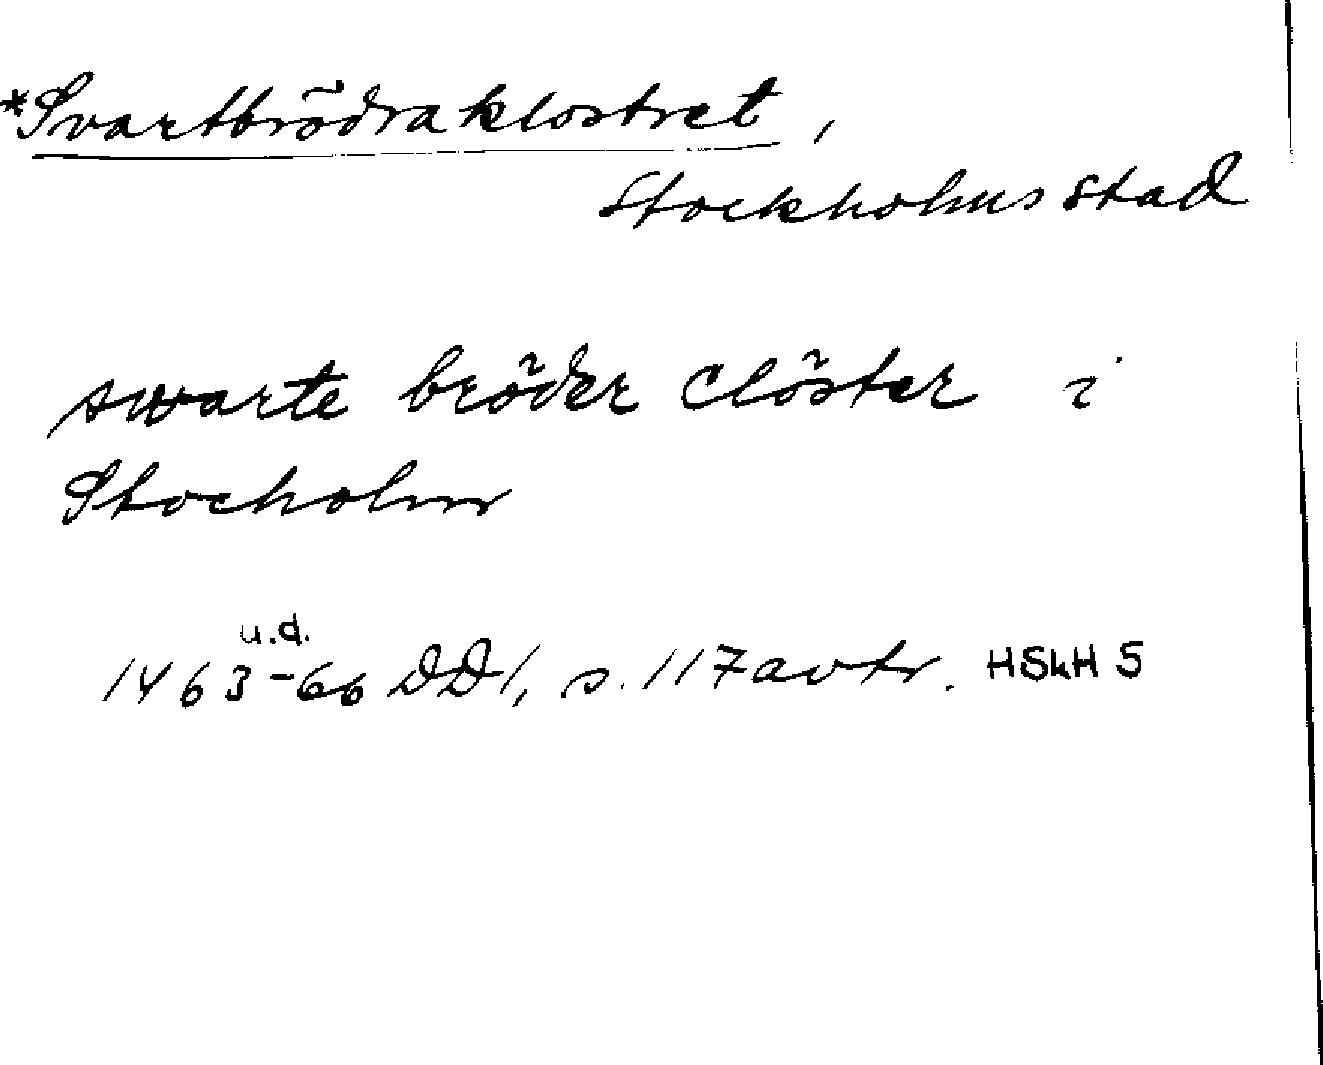 *Svartbrödraklostret,
Stockholms stad
swarte bröder clöster i
Stocholm
u.d.
1463-66 DD1, s. 117 avtr. HSkH 5